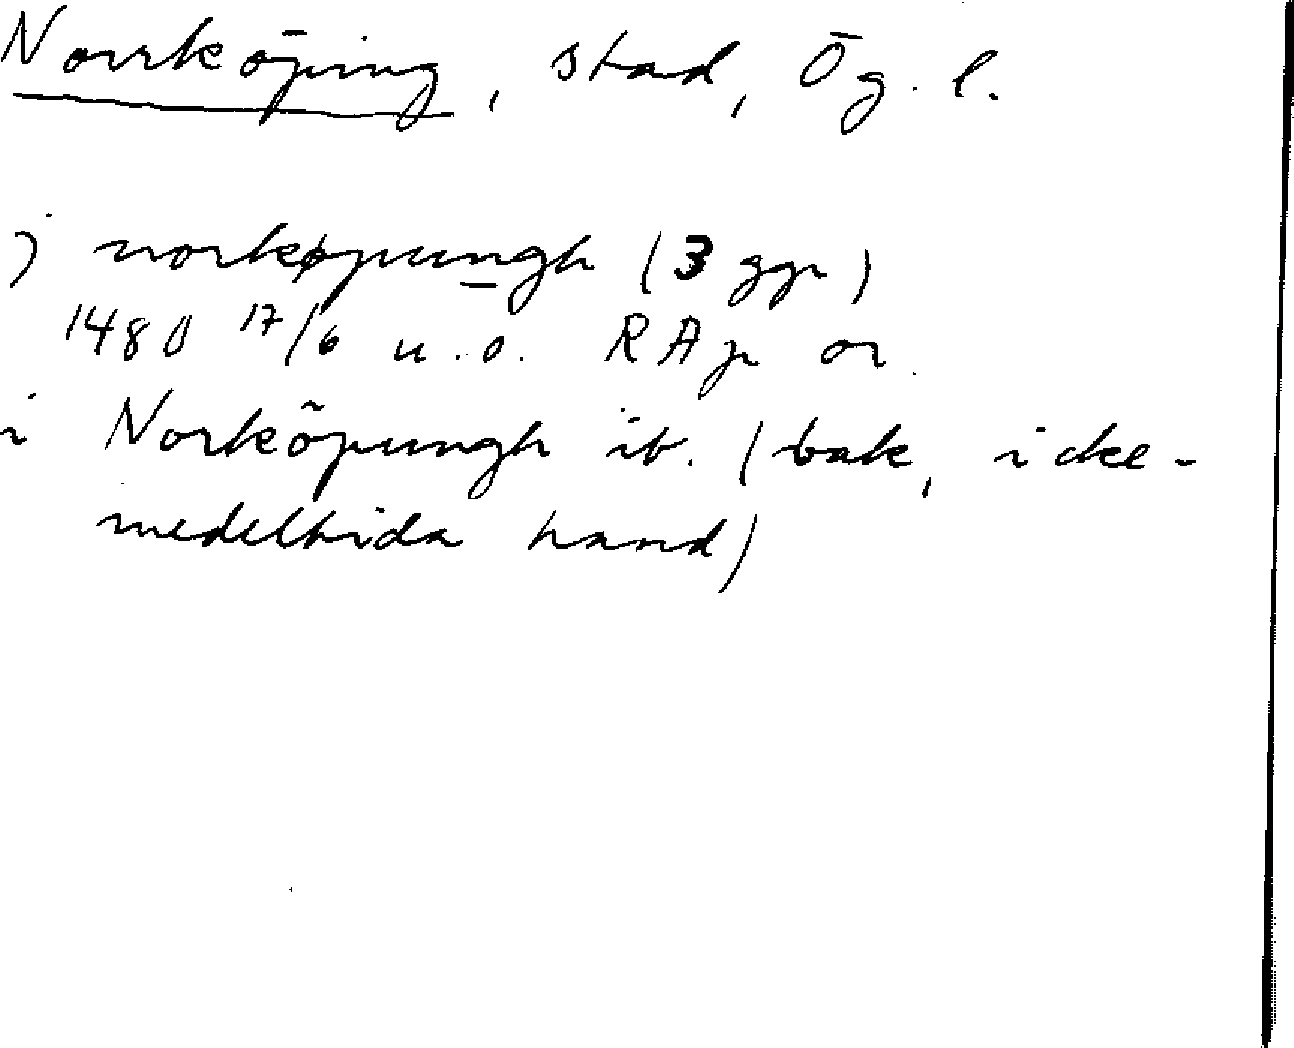 Norrköping, stad, Ög. l.
j norkøpungh (3 ggr)
1480 17/6 u.o. RAp or
i Norköpungh ib. (bak, icke-
medeltida hand)